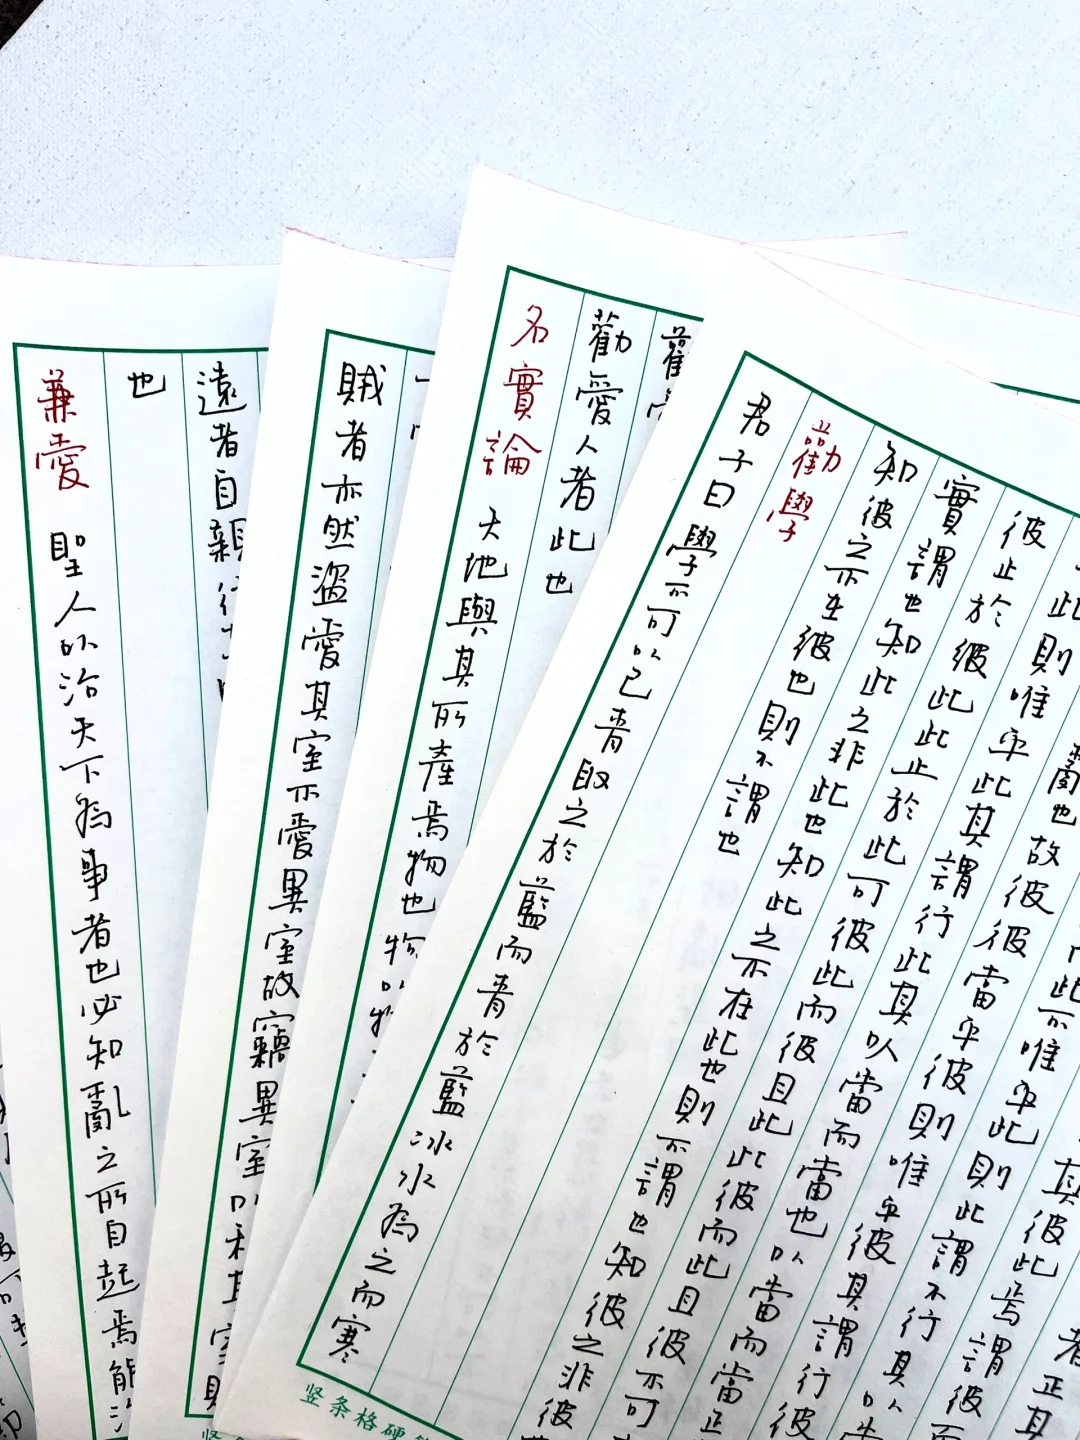 者正其
其彼此焉謂彼而
而此不唯乎此則此謂不行其以
亂也故彼彼當乎彼則唯乎彼其謂行彼
此則唯乎此其謂行此其以當而當也以當而當正
彼止於彼此此止於此可彼此而彼且此此彼而此且彼不可
實謂也知此之非此也知此之不在此也則不謂也知彼之非彼
知彼之不在彼也則不謂也
勸學
君子曰學不可以已青取之於藍而青於藍冰水為之而寒
竖条格硬
勸愛人者此也
名實論 天地與其所產焉物也物以物
賊者亦然盜愛其室不愛異室故竊異室以利其室賊
遠者自親行
也
兼愛 聖人以治天下為事者也必知亂之所自起焉能治